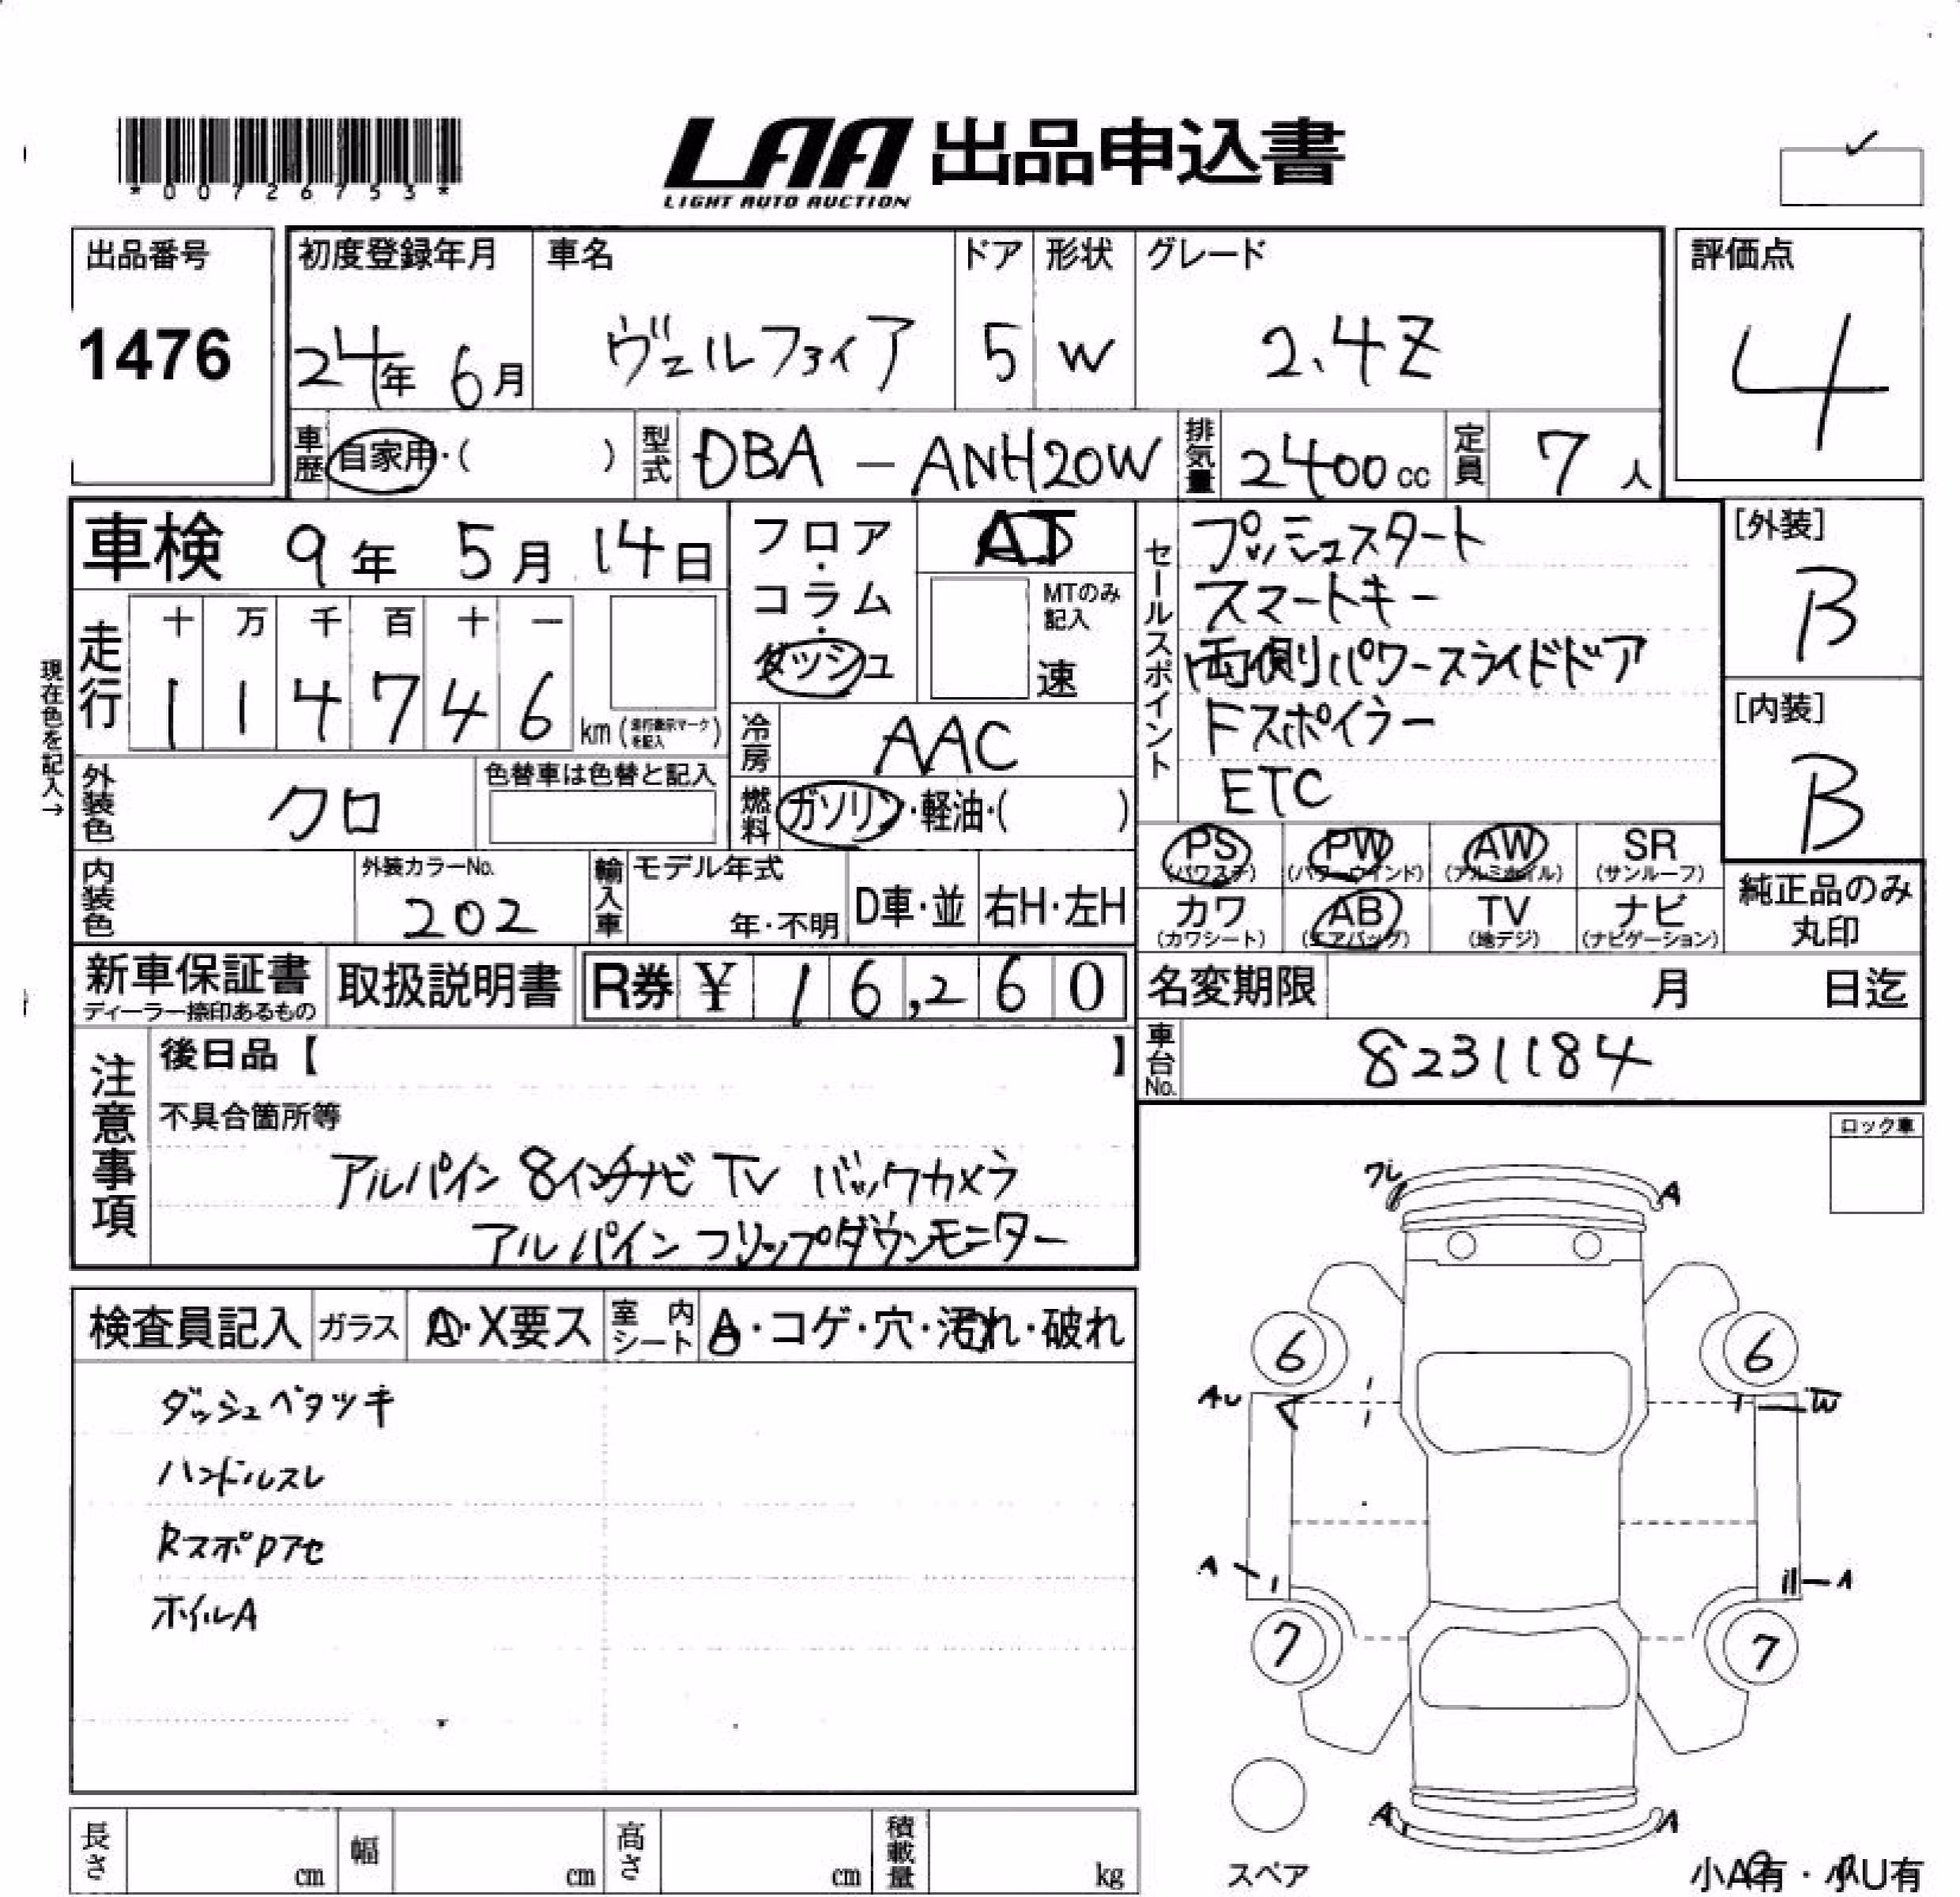 *00726753*
LAA 出品申込書
LIGHT AUTO AUCTION
出品番号
1476
初度登録年月
24年 6月
車名
ヴェルファイア
ドア
5
形状
W
グレード
2.4Z
評価点
4
車歴 自家用・( )
型式 DBA - ANH20W
排気量 2400cc
定員 7人
車検 9年 5月 14日
フロア・コラム・ダッシュ
AT
MTのみ記入
速
セールスポイント
プッシュスタート
スマートキー
両側パワースライドドア
Fスポイラー
ETC
[外装]
B
[内装]
B
現在色を記入→
走行
十 万 千 百 十 一
1 1 4 7 4 6 km (走行表示マークを記入)
冷房 AAC
外装色 クロ
色替車は色替と記入
燃料 ガソリン・軽油・( )
PS (パワステ)
PW (パワーウインド)
AW (アルミホイル)
SR (サンルーフ)
カワ (カワシート)
AB (エアバッグ)
TV (地デジ)
ナビ (ナビゲーション)
純正品のみ
丸印
内装色
外装カラーNo.
202
輸入車
モデル年式
年・不明
D車・並
右H・左H
新車保証書
ディーラー捺印あるもの
取扱説明書
R券 ¥ 16,260
名変期限 月 日迄
車台No. 8231184
注意事項
後日品【 】
不具合箇所等
アルパイン 8インチナビ TV バックカメラ
アルパイン フリップダウンモニター
ロック車
検査員記入
ガラス A・X要ス
室内シート A・コゲ・穴・汚れ・破れ
ダッシュベタツキ
ハンドルスレ
RスポDアセ
ホイルA
ワレ
A
6
6
AU
W
A
A
7
7
A
A
スペア
小A有・小U有
長さ cm
幅 cm
高さ cm
積載量 kg